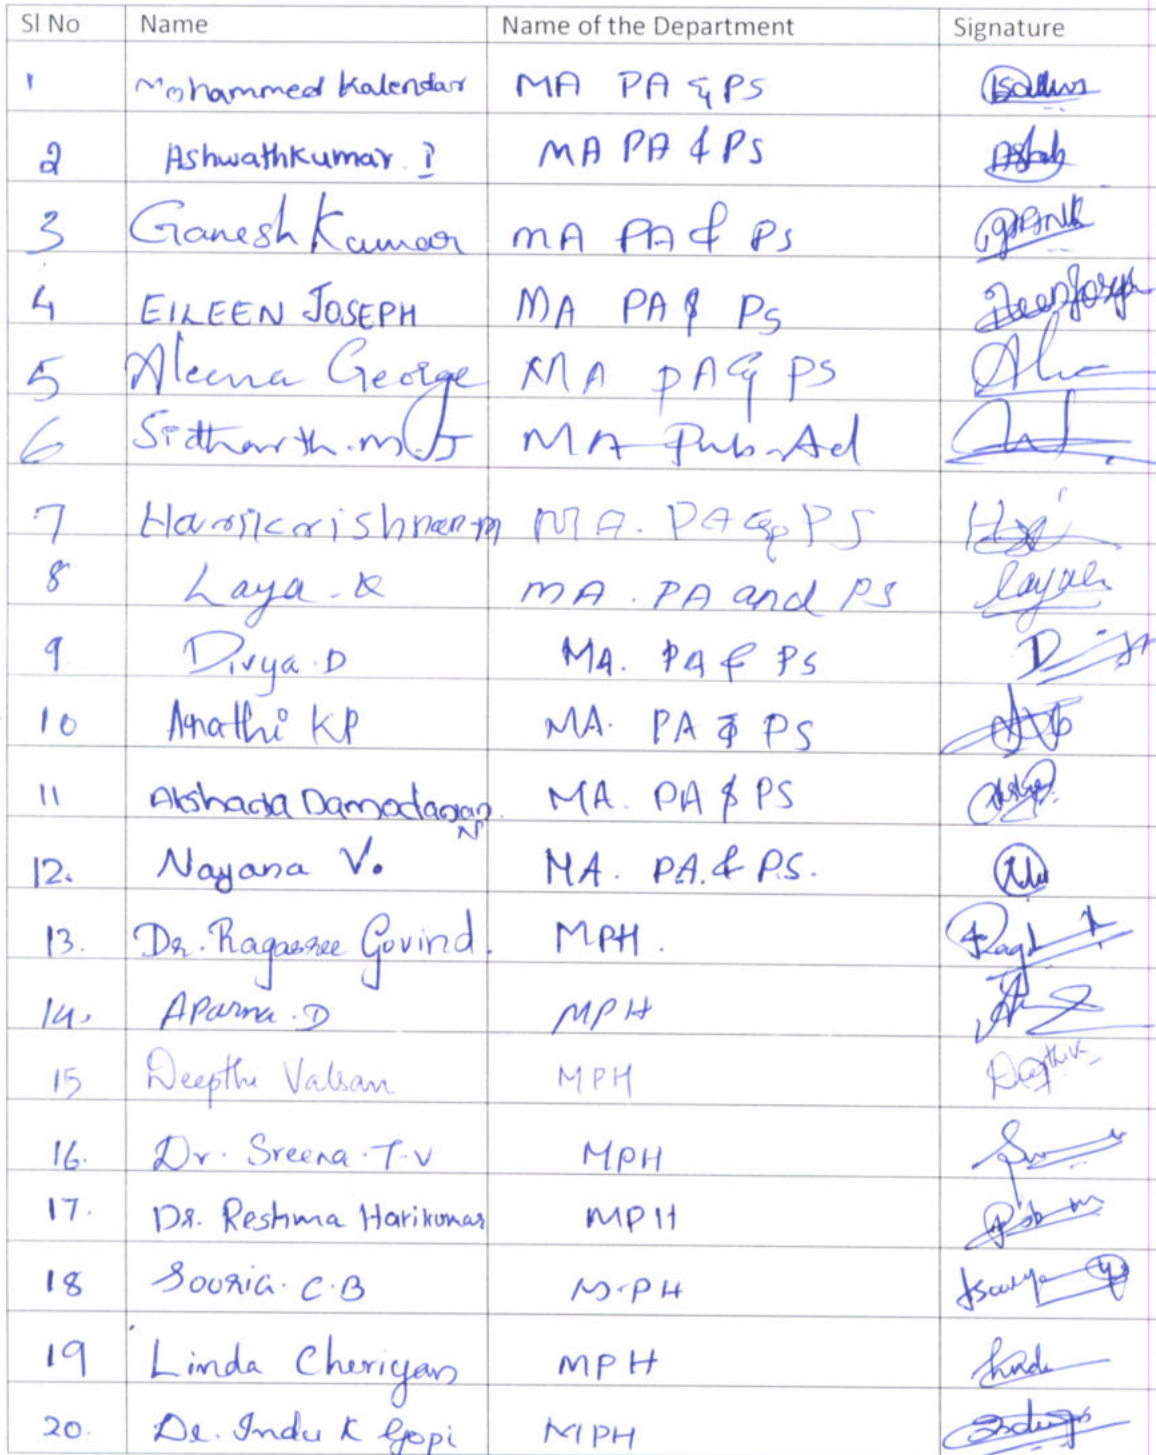 Sl No Name Name of the Department Signature
1 Mohammed Kalendar MA PA & PS
2 Ashwathkumar. I MA PA & PS
3 Ganesh Kumar MA PA & PS
4 EILEEN JOSEPH MA PA & PS
5 Aleena George MA PA & PS
6 Sidharth.m.J MA Pub-Ad
7 Harikrishnan m MA. PA & PS
8 Laya. K MA. PA and PS
9 Divya.D MA. PA & PS
10 KP MA. PA & PS
11 Damodaran N MA. PA & PS
12. Nayana V. MA. PA. & PS.
13. Dr. Ragasree Govind. MPH.
14. Aparna.D MPH
15 Deepthi Valsan MPH
16. Dr. Sreena.T.V MPH
17. Dr. Reshma Harikumar MPH
18 Souria. C.B M.PH
19 Linda Cheriyan MPH
20. Dr. Indu K Gopi MPH